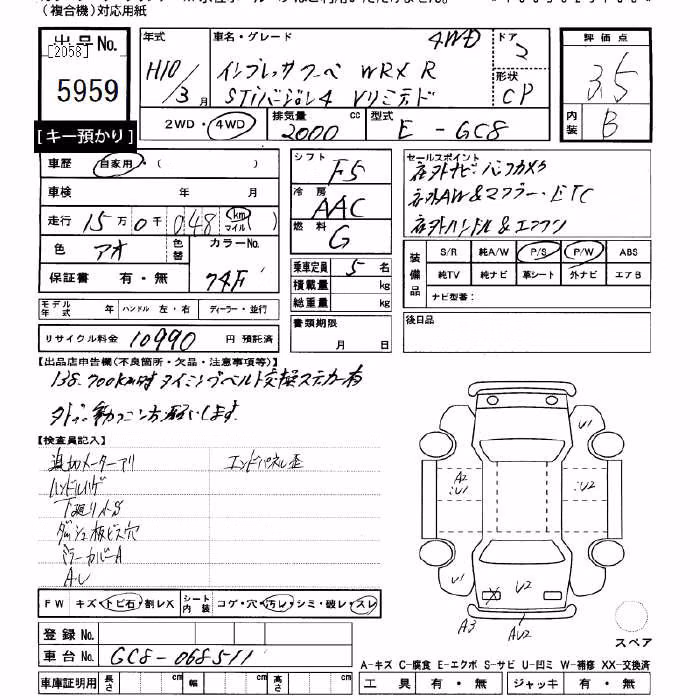 (複合機)対応用紙
出品No.
[2058]
5959
[キー預かり]
年式
H10/3月
車名・グレード
4WD
インプレッサクーペ WRX R
STiバージョン4 Vリミテッド
ドア
2
形状
CP
評価点
3.5
内装
B
2WD・4WD
排気量
2000
cc
型式
E-GC8
車歴
自家用・( )
車検 年 月
走行 15万0千048(km マイル)
色
アオ
色替
カラーNo.
74F
保証書 有・無
シフト
F5
冷房
AAC
燃料
G
乗車定員 5名
積載量 kg
総重量 kg
書類期限
月 日
セールスポイント
社外ナビ・バックカメラ
社外AW&マフラー・ETC
社外ハンドル&エアクリ
装備品
S/R 純A/W P/S P/W ABS
純TV 純ナビ 革シート 外ナビ エアB
ナビ型番:
後日品
モデル年式 年 ハンドル 左・右 ディーラー・並行
リサイクル料金 10990 円 預託済
【出品店申告欄(不良箇所・欠品・注意事項等)】
138.700km時タイミングベルト交換ステッカー有
【検査員記入】
追加メーターアリ
エンドパネル歪
ハンドルハゲ
下廻りキS
ダッシュ板ビス穴
ミラーカバーA
A・U
FW キズ・トビ石・割レX シート内装 コゲ・穴・汚レ・シミ・破レ・スレ
登録No.
車台No. GC8-068511
車庫証明用 長さ cm 幅 cm 高さ cm
U1
A2
U1
U2
U1
U2
U1
X
A3
AU2
スペア
A-キズ C-腐食 E-エクボ S-サビ U-凹ミ W-補修 XX-交換済
工具 有・無 ジャッキ 有・無